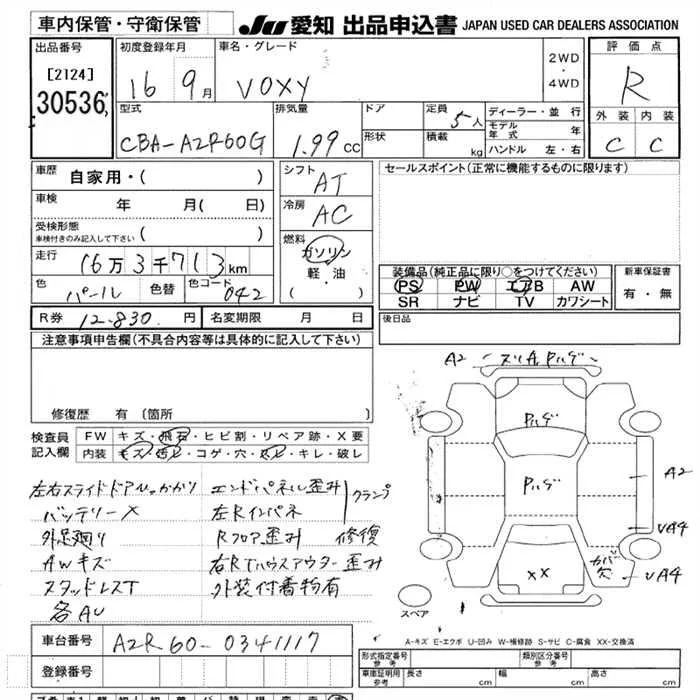 車内保管・守衛保管
JU 愛知 出品申込書 JAPAN USED CAR DEALERS ASSOCIATION
出品番号
[2124]
30536
初度登録年月
16 9月
車名・グレード
VOXY
2WD
・
4WD
評価点
R
外装 内装
C C
型式
CBA-AZR60G
排気量
1.99 CC
ドア
形状
定員
5人
積載
kg
ディーラー・並行
モデル年式 年
ハンドル 左・右
車歴
自家用・( )
車検 年 月( 日)
受検形態
車検付きのみ記入して下さい ( )
走行
16万3千713km
色
パール
色替
色コード
042
シフト
AT
冷房
AC
燃料
ガソリン
軽・油
( )
セールスポイント(正常に機能するものに限ります)
装備品(純正品に限り○をつけてください)
PS PW エアB AW
SR ナビ TV カワシート
新車保証書
有・無
R券 12.830 円
名変期限 月 日
後日品
注意事項申告欄(不具合内容等は具体的に記入して下さい)
修復歴 有(箇所
検査員
記入欄
FW キズ・飛石・ヒビ割・リペア跡・X要
内装 キズ・汚レ・コゲ・穴・スレ・キレ・破レ
左右スライドドアルつかかり
バッテリーX
外足廻り
AWキズ
スタッドレスT
各AU
エンドパネル歪み
左Rインパネ
Rフロア歪み
クランプ
修復
右RTハウスアウター歪み
外装付着物有
A2
ヌリA Pハゲ
Pハゲ
Pハゲ
A2
VA4
カバー欠
VA4
XX
スペア
A-キズ E-エクボ U-凹み W-補修跡 S-サビ C-腐食 XX-交換済
車台番号
AZR60-0341117
登録番号
形式指定番号
参考
類別区分番号
参考
車庫証明用
参考
長さ cm
幅 cm
高さ cm